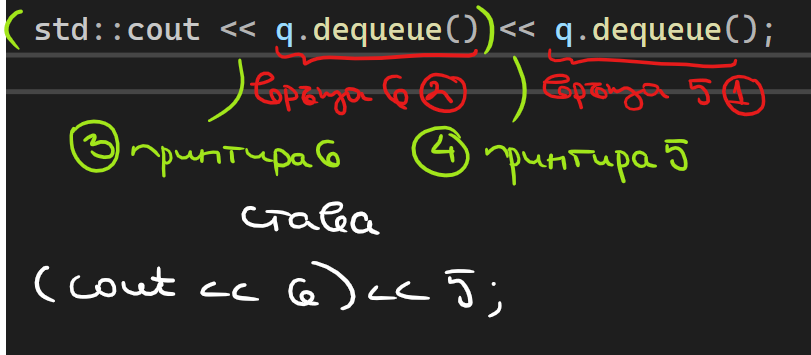 ( std::cout << q.dequeue() ) << q.dequeue();
) връща 6 ② ) връща 5 ①
③ принтира 6 ④ принтира 5
става
(cout << 6) << 5;